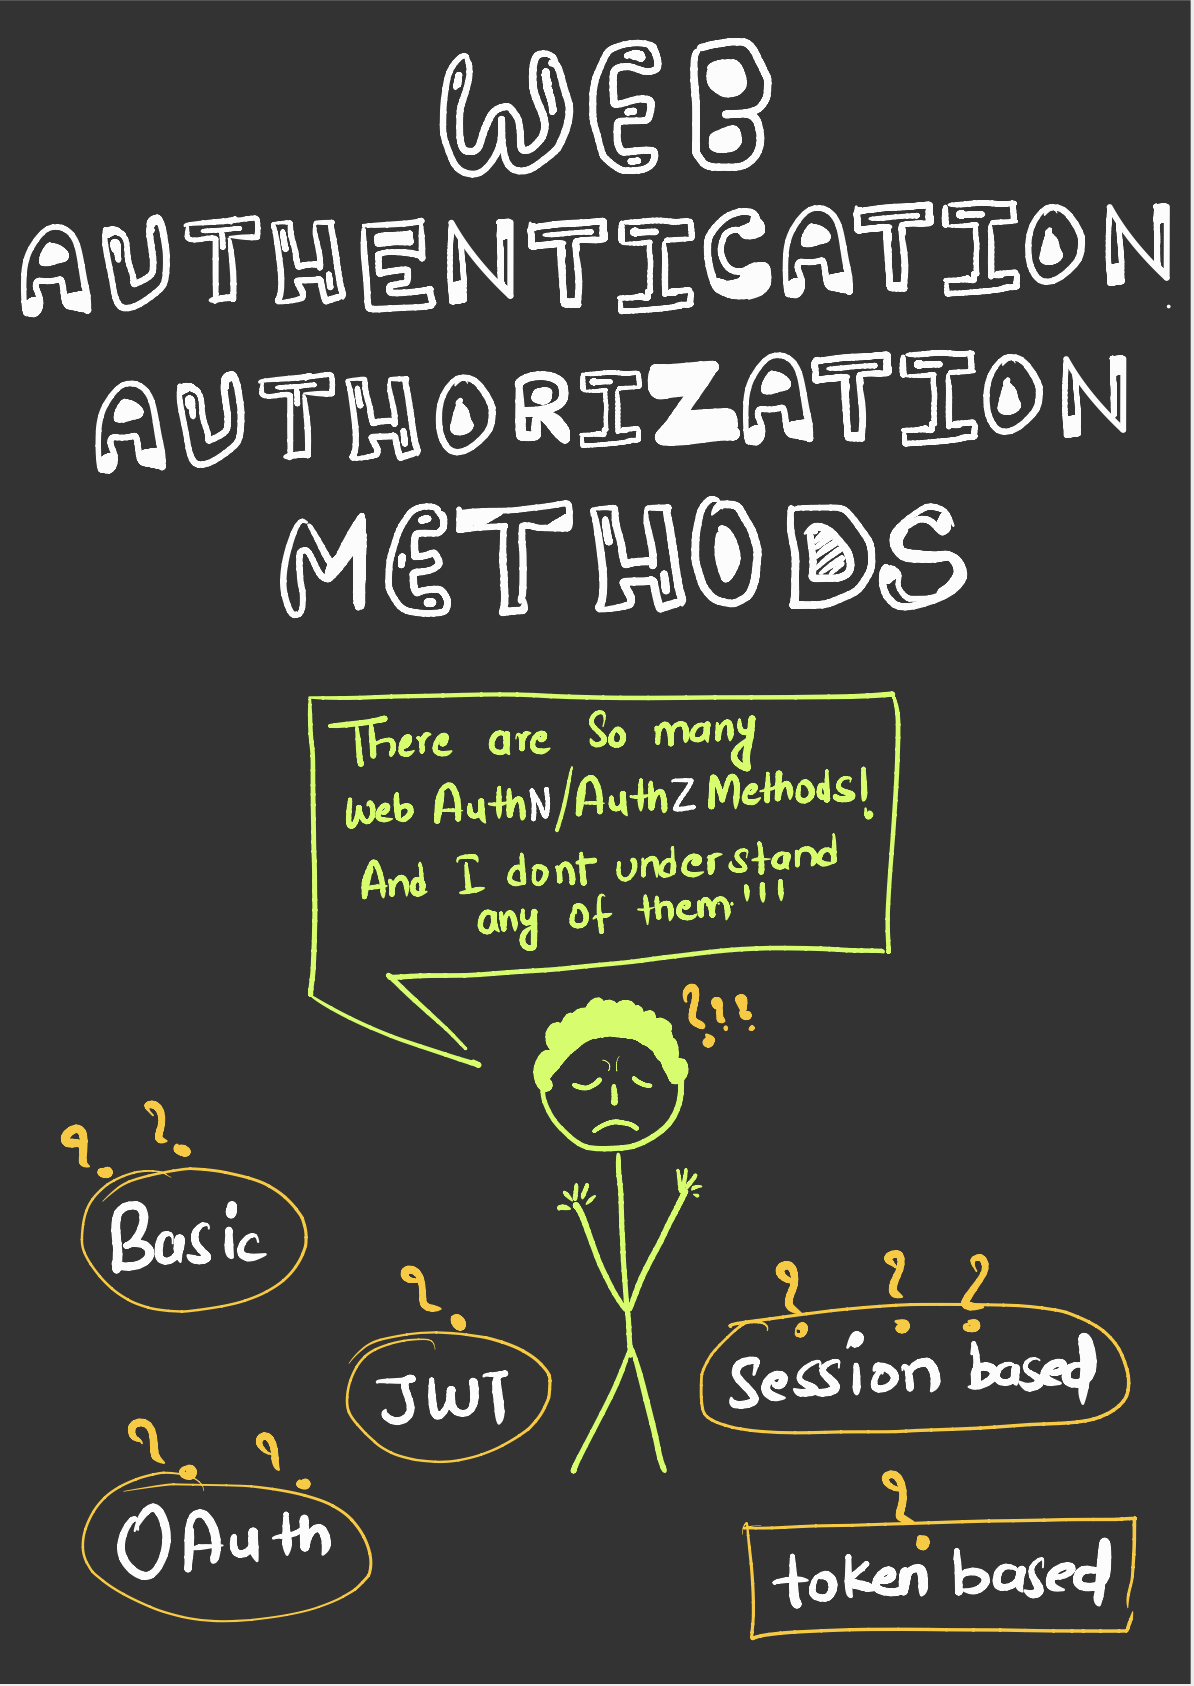 WEB
AUTHENTICATION
AUTHORIZATION
METHODS
There are So many
web AuthN/AuthZ Methods!
And I dont understand
any of them!!!
???
? ?
Basic
?
JWT
? ? ?
Session based
? ?
OAuth
?
token based